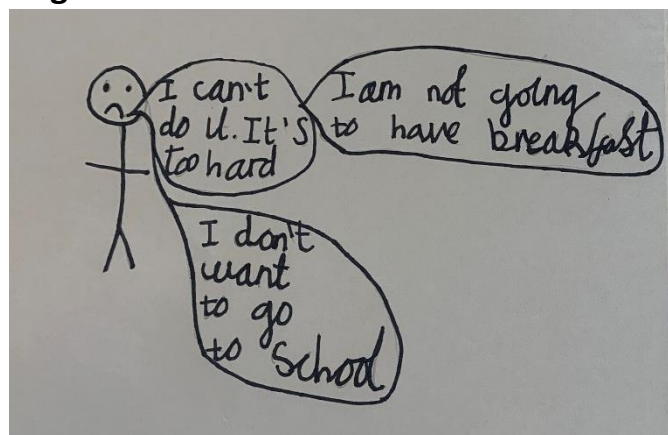 I can't
do it. It's
too hard
I am not going
to have breakfast
I don't
want
to go
to school